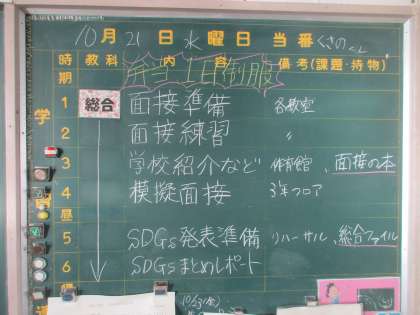 10月21日水曜日 当番 くさのくん
時期 教科 内容 備考(課題・持物)
弁当 1日制服
1 総合 面接準備 各教室
2 面接練習 〃
3 学校紹介など 体育館、面接の本
4 模擬面接 3年フロア
昼
5 SDGs発表準備 リハーサル、総合ファイル
6 SDGsまとめレポート
学